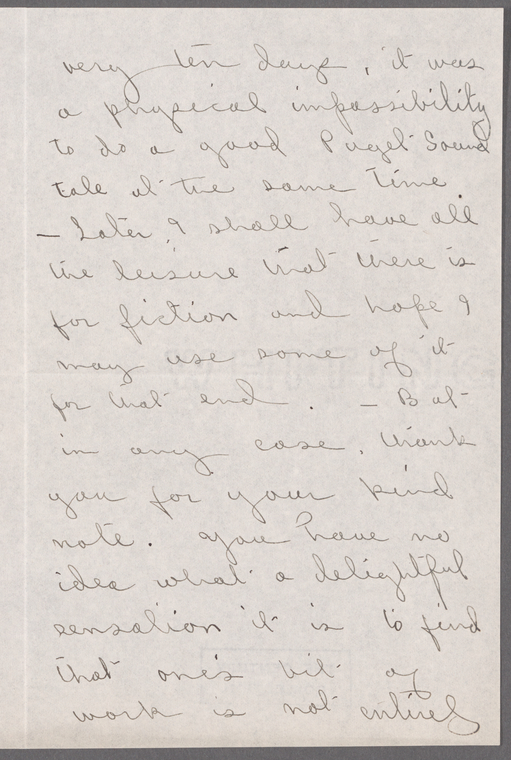 very ten days, it was
a physical impossibility
to do a good Puget Sound
tale at the same time.
— Later, I shall have all
the leisure that there is
for fiction and hope I
may use some of it
for that end. — But
in any case, thank
you for your kind
note. You have no
idea what a delightful
sensation it is to find
that one's bit of
work is not entirely